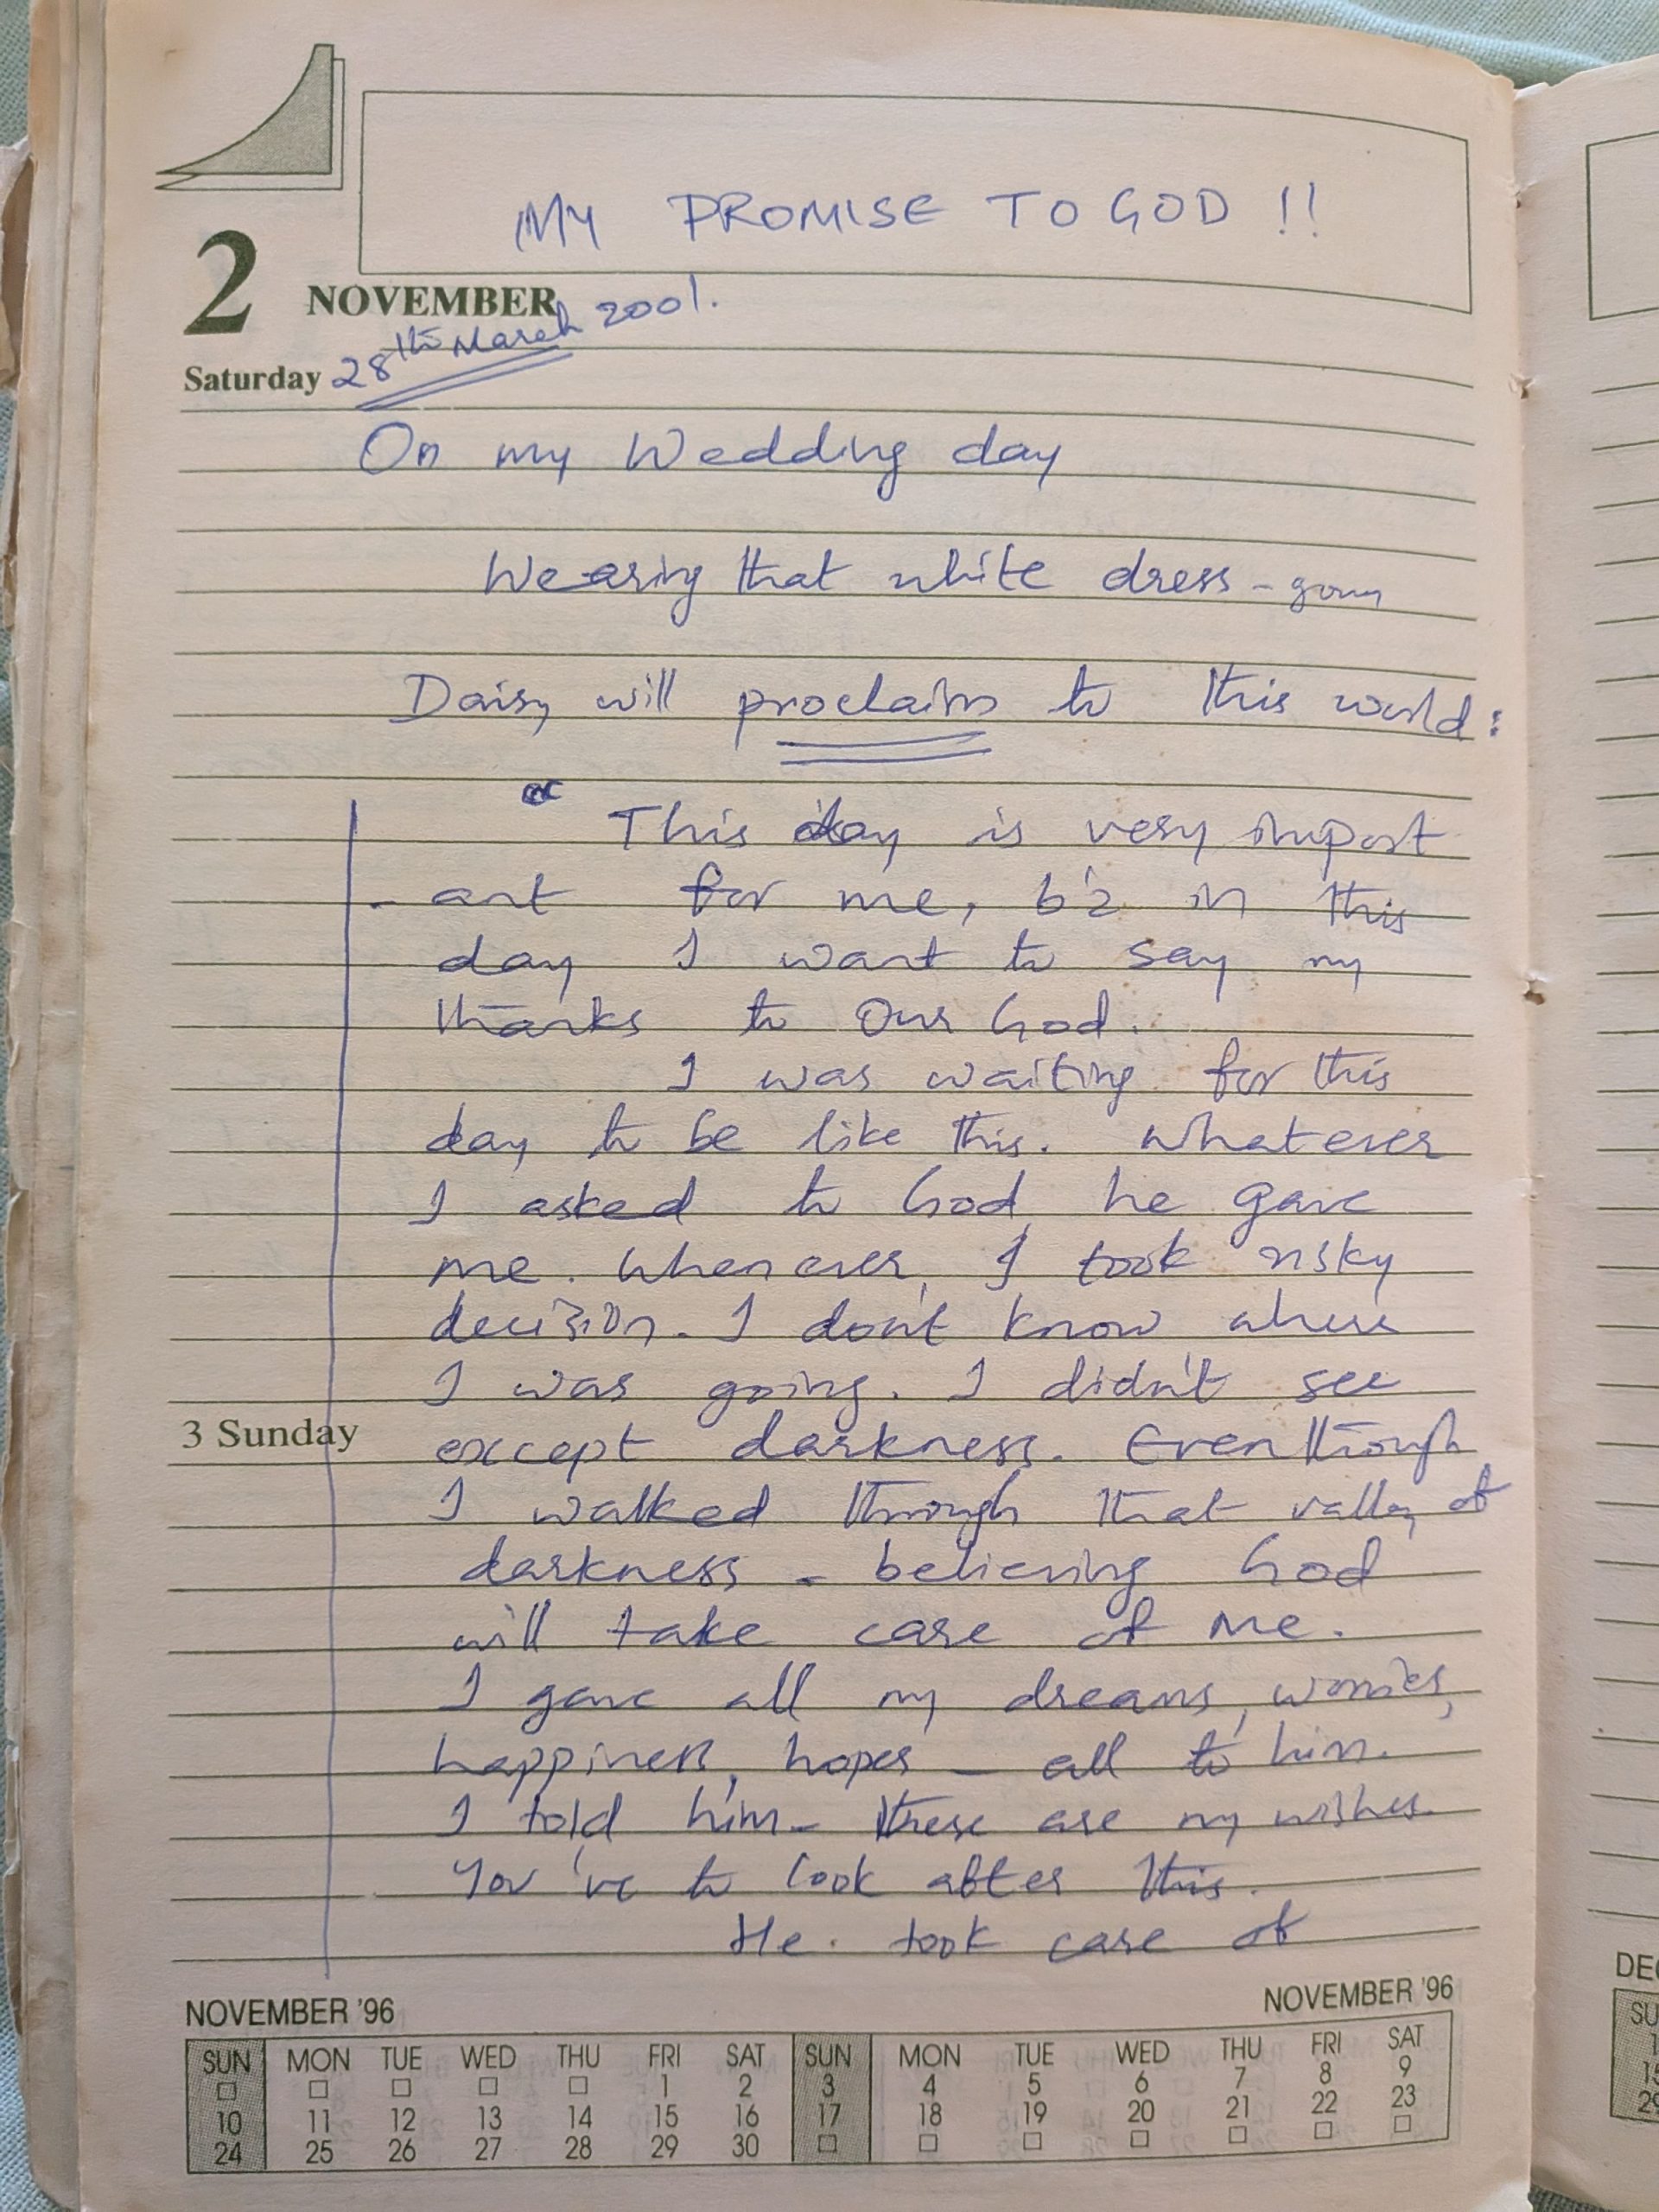 MY PROMISE TO GOD !!
2 NOVEMBER
Saturday 28th March 2001.
On my Wedding day
Wearing that white dress - gown
Daisy will proclaim to this world:
" This day is very import
- ant for me, b'z in this
day I want to say my
thanks to Our God.
I was waiting for this
day to be like this. Whatever
I asked to God, he gave
me. Whenever, I took risky
decision. I don't know where
I was going. I didn't see
3 Sunday except darkness. Eventhough
I walked through that valley of
darkness - believing God
will take care of me.
I gave all my dreams, worries,
happiness, hopes - all to him.
I told him - these are my wishes.
You've to look after this.
He. took care of
NOVEMBER '96 NOVEMBER '96
SUN MON TUE WED THU FRI SAT SUN MON TUE WED THU FRI SAT
□ □ □ □ □ 1 2 3 4 5 6 7 8 9
10 11 12 13 14 15 16 17 18 19 20 21 22 23
24 25 26 27 28 29 30 □ □ □ □ □ □ □